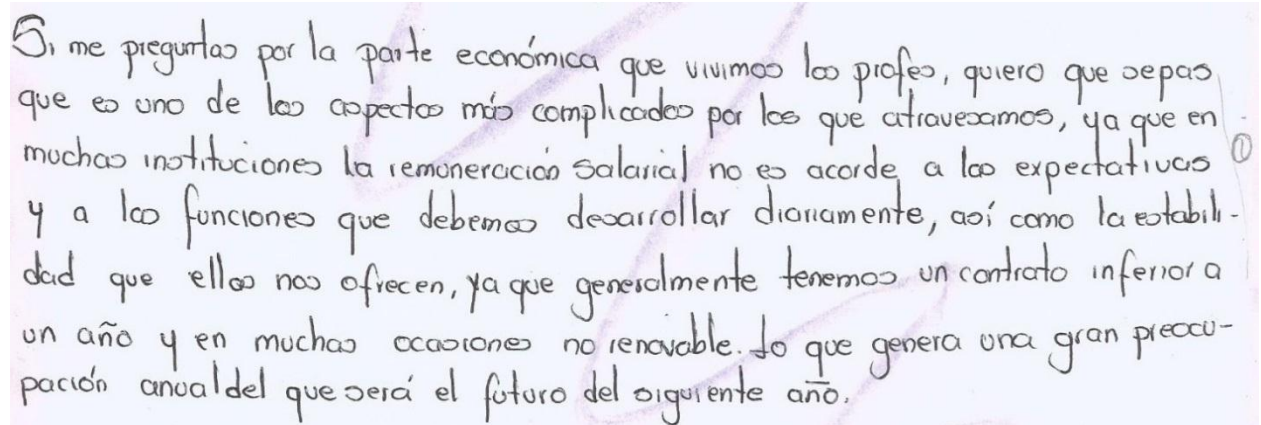 Si me preguntas por la parte económica que vivimos los profes, quiero que sepas
que es uno de los aspectos más complicados por los que atravesamos, ya que en
muchas instituciones la remuneración salarial no es acorde a las expectativas ①
y a las funciones que debemos desarrollar diariamente, así como la estabili-
dad que ellos nos ofrecen, ya que generalmente tenemos un contrato inferior a
un año y en muchas ocasiones no renovable. Lo que genera una gran preocu-
pación anual del que será el futuro del siguiente año.